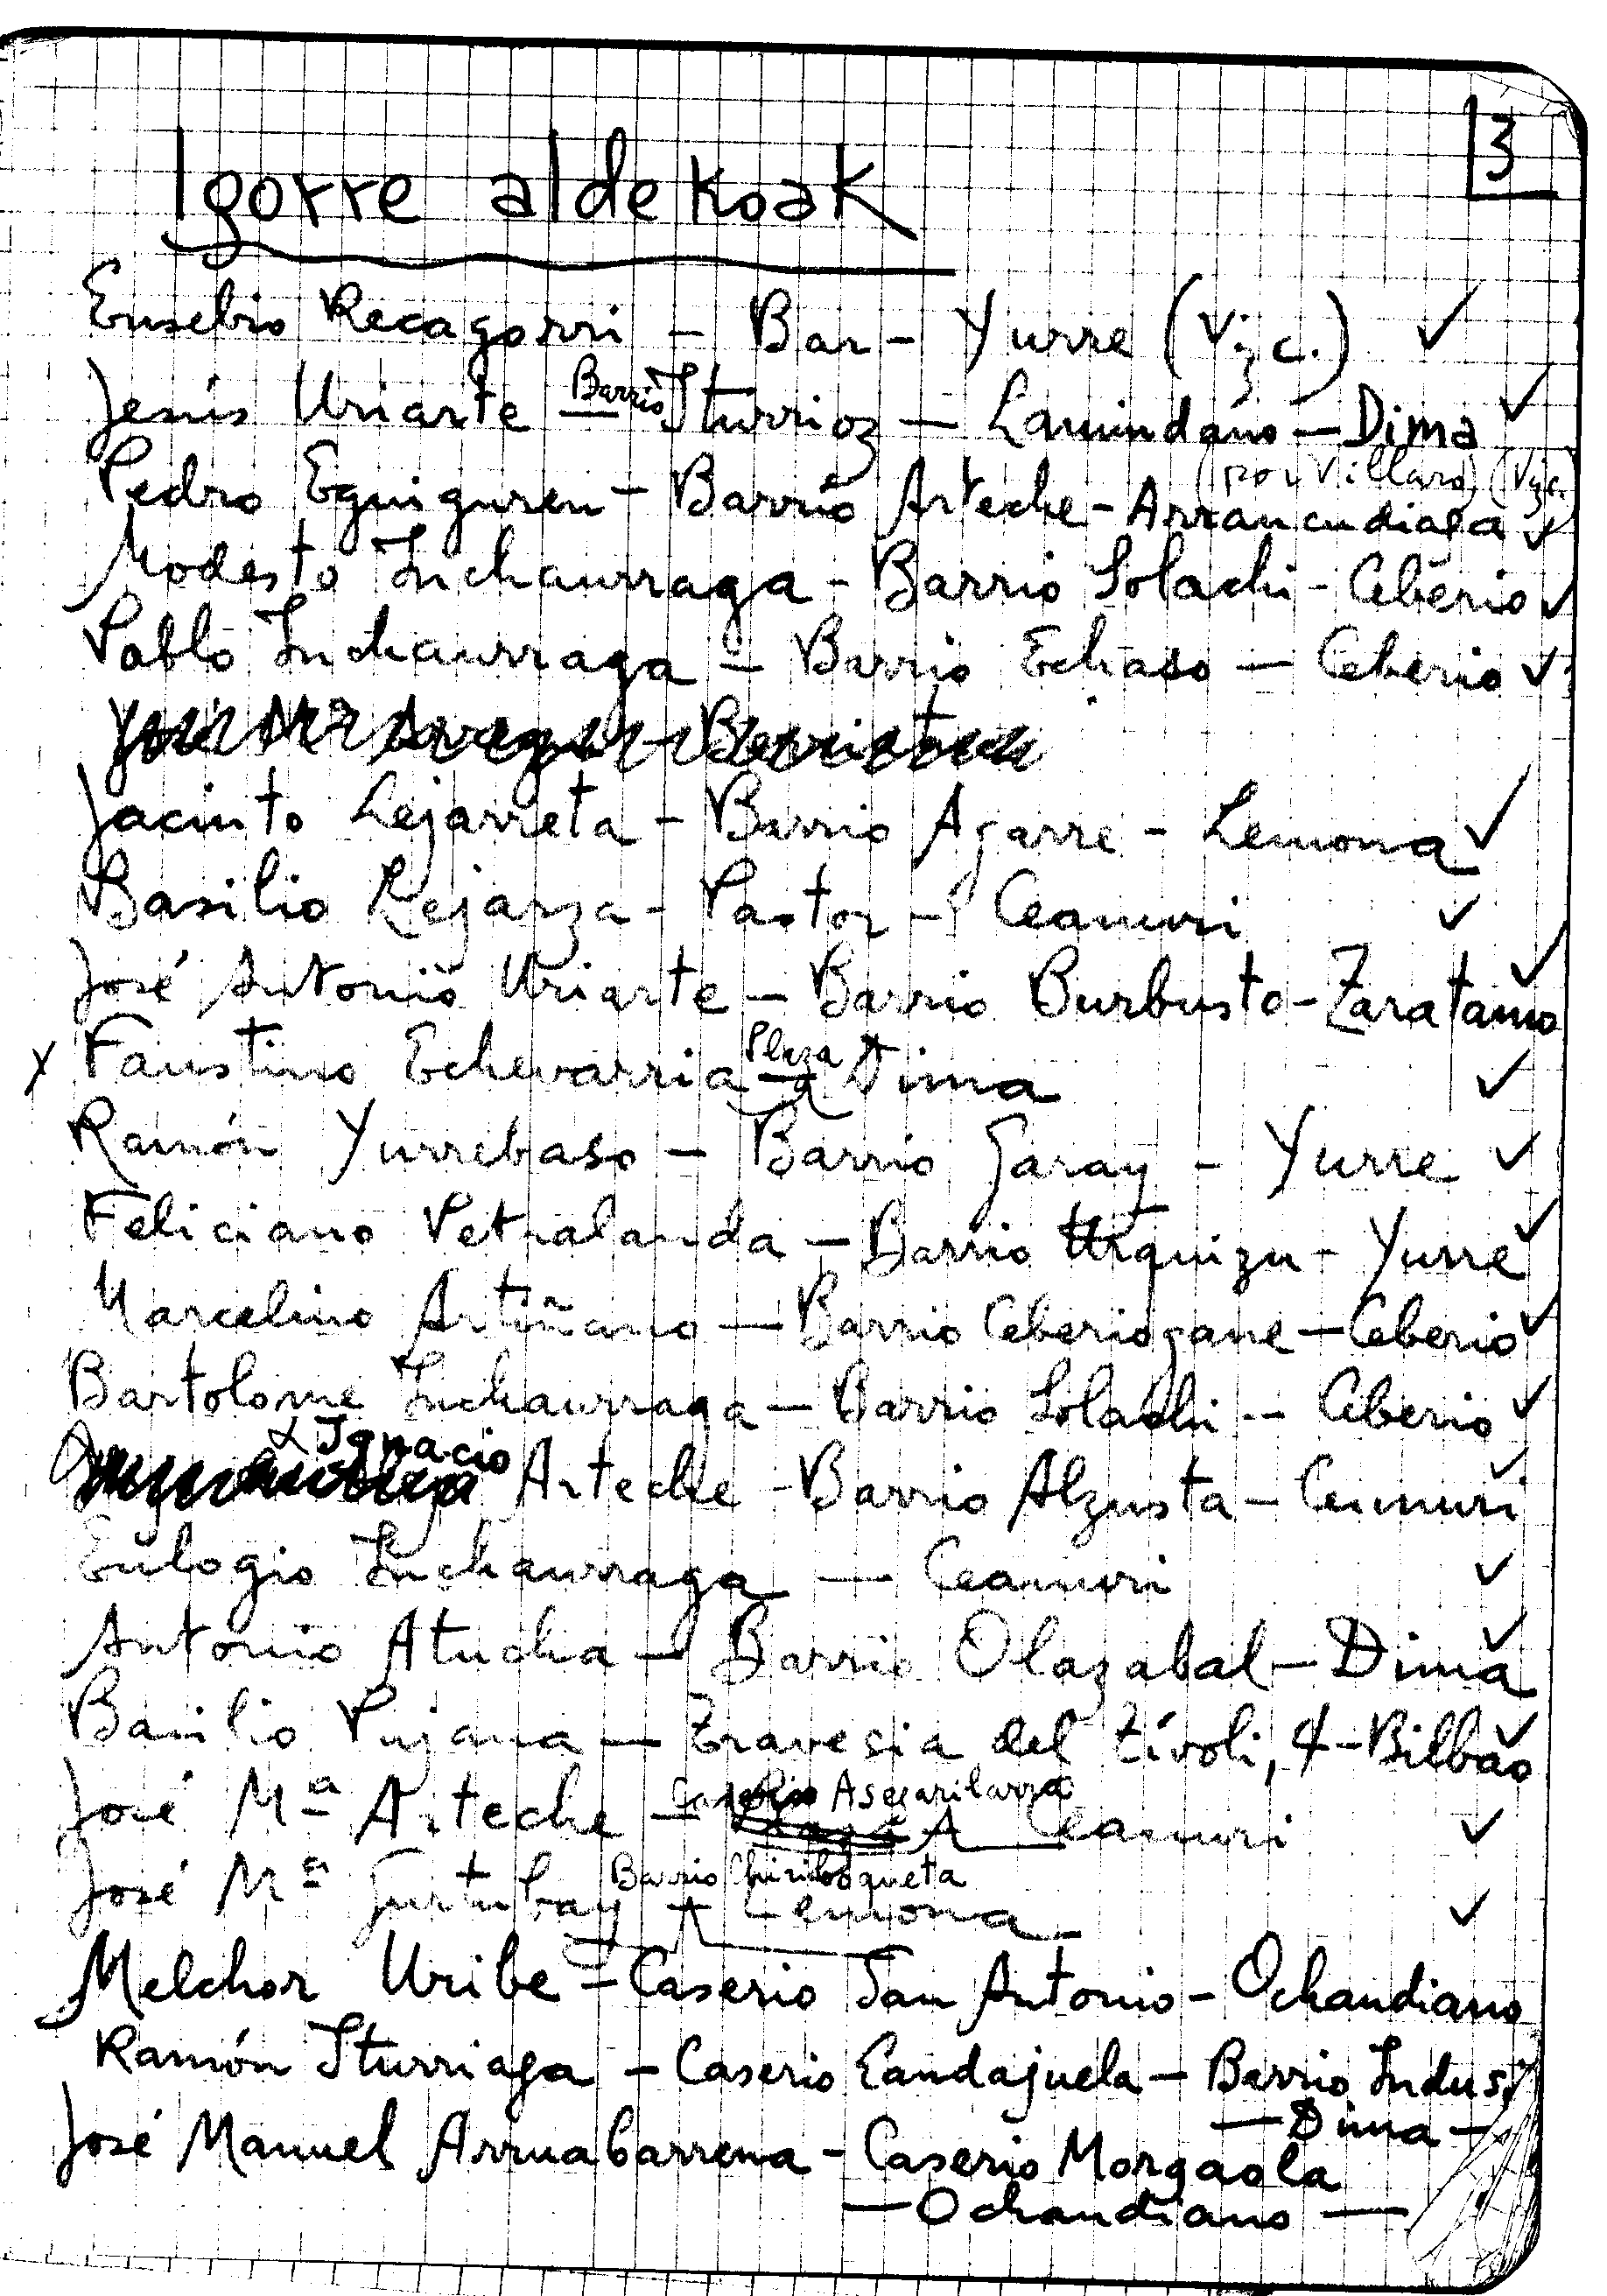 3
Igorre aldekoak
Eusebio Recagorri - Bar - Yurre (Vizc.) ✓
Jesús Uriarte - Barrio Iturrioz - Lamindano - Dima ✓
(por Villaro) (Vizc.)
Pedro Eguiguren - Barrio Arteche - Arrancudiaga ✓
Modesto Inchaurraga - Barrio Solachi - Ceberio ✓
Pablo Inchaurraga - Barrio Echaso - Ceberio ✓
Jacinto Lejarreta - Barrio Agarre - Lemona ✓
Basilio Lejarza - Pastor - Ceanuri ✓
José Antonio Uriarte - Barrio Burbusto - Zaratamo ✓
x Faustino Echevarria - Plaza - Dima ✓
Ramón Yurrebaso - Barrio Garay - Yurre ✓
Feliciano Petralanda - Barrio Urquizu - Yurre ✓
Marcelino Artiñano - Barrio Ceberiogane - Ceberio ✓
Bartolome Inchaurraga - Barrio Solachi - Ceberio ✓
Ignacio Arteche - Barrio Alzusta - Ceanuri ✓
Eulogio Inchaurraga - Ceanuri ✓
Antonio Atucha - Barrio Olazabal - Dima ✓
Basilio Pujana - Travesia del Tívoli, 4 - Bilbao ✓
José Mª Arteche - Caserio Asegarilarza - Ceanuri ✓
José Mª Gurtubay - Barrio Chiriboqueta - Lemona ✓
Melchor Uribe - Caserio San Antonio - Ochandiano
Ramón Iturriaga - Caserio Landajuela - Barrio Indusi
- Dima -
José Manuel Arruabarrena - Caserio Morgaola
- Ochandiano -